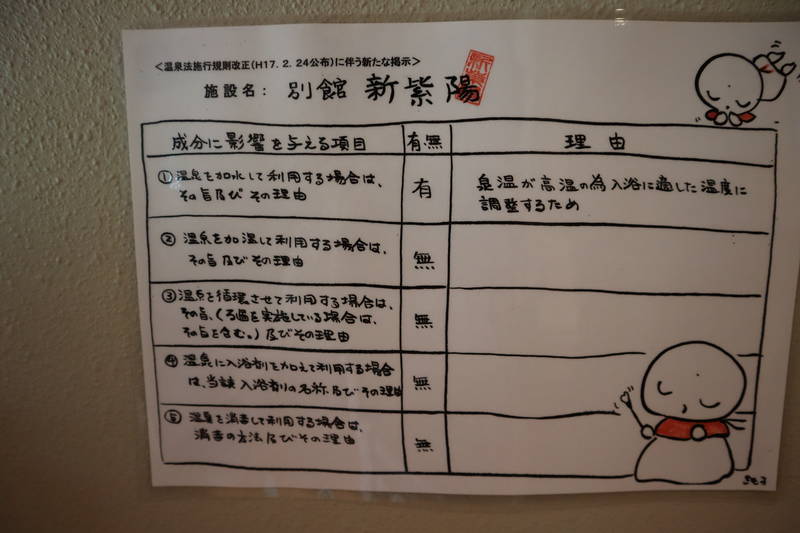 ＜温泉法施行規則改正(H17.2.24公布)に伴う新たな掲示＞
施設名: 別館 新紫陽
成分に影響を与える項目 有・無 理由
①温泉を加水して利用する場合は、
その旨及び その理由
有
泉温が高温の為入浴に適した温度に
調整するため
②温泉を加温して利用する場合は、
その旨及びその理由
無
③温泉を循環させて利用する場合は、
その旨、(ろ過を実施している場合は、
その旨を含む。)及びその理由
無
④温泉に入浴剤を加えて利用する場合
は、当該入浴剤の名称及びその理由
無
⑤温泉を消毒して利用する場合は、
消毒の方法及びその理由
無